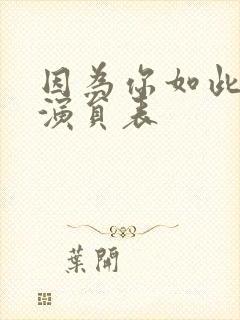 因為你如此
演員表
葉開